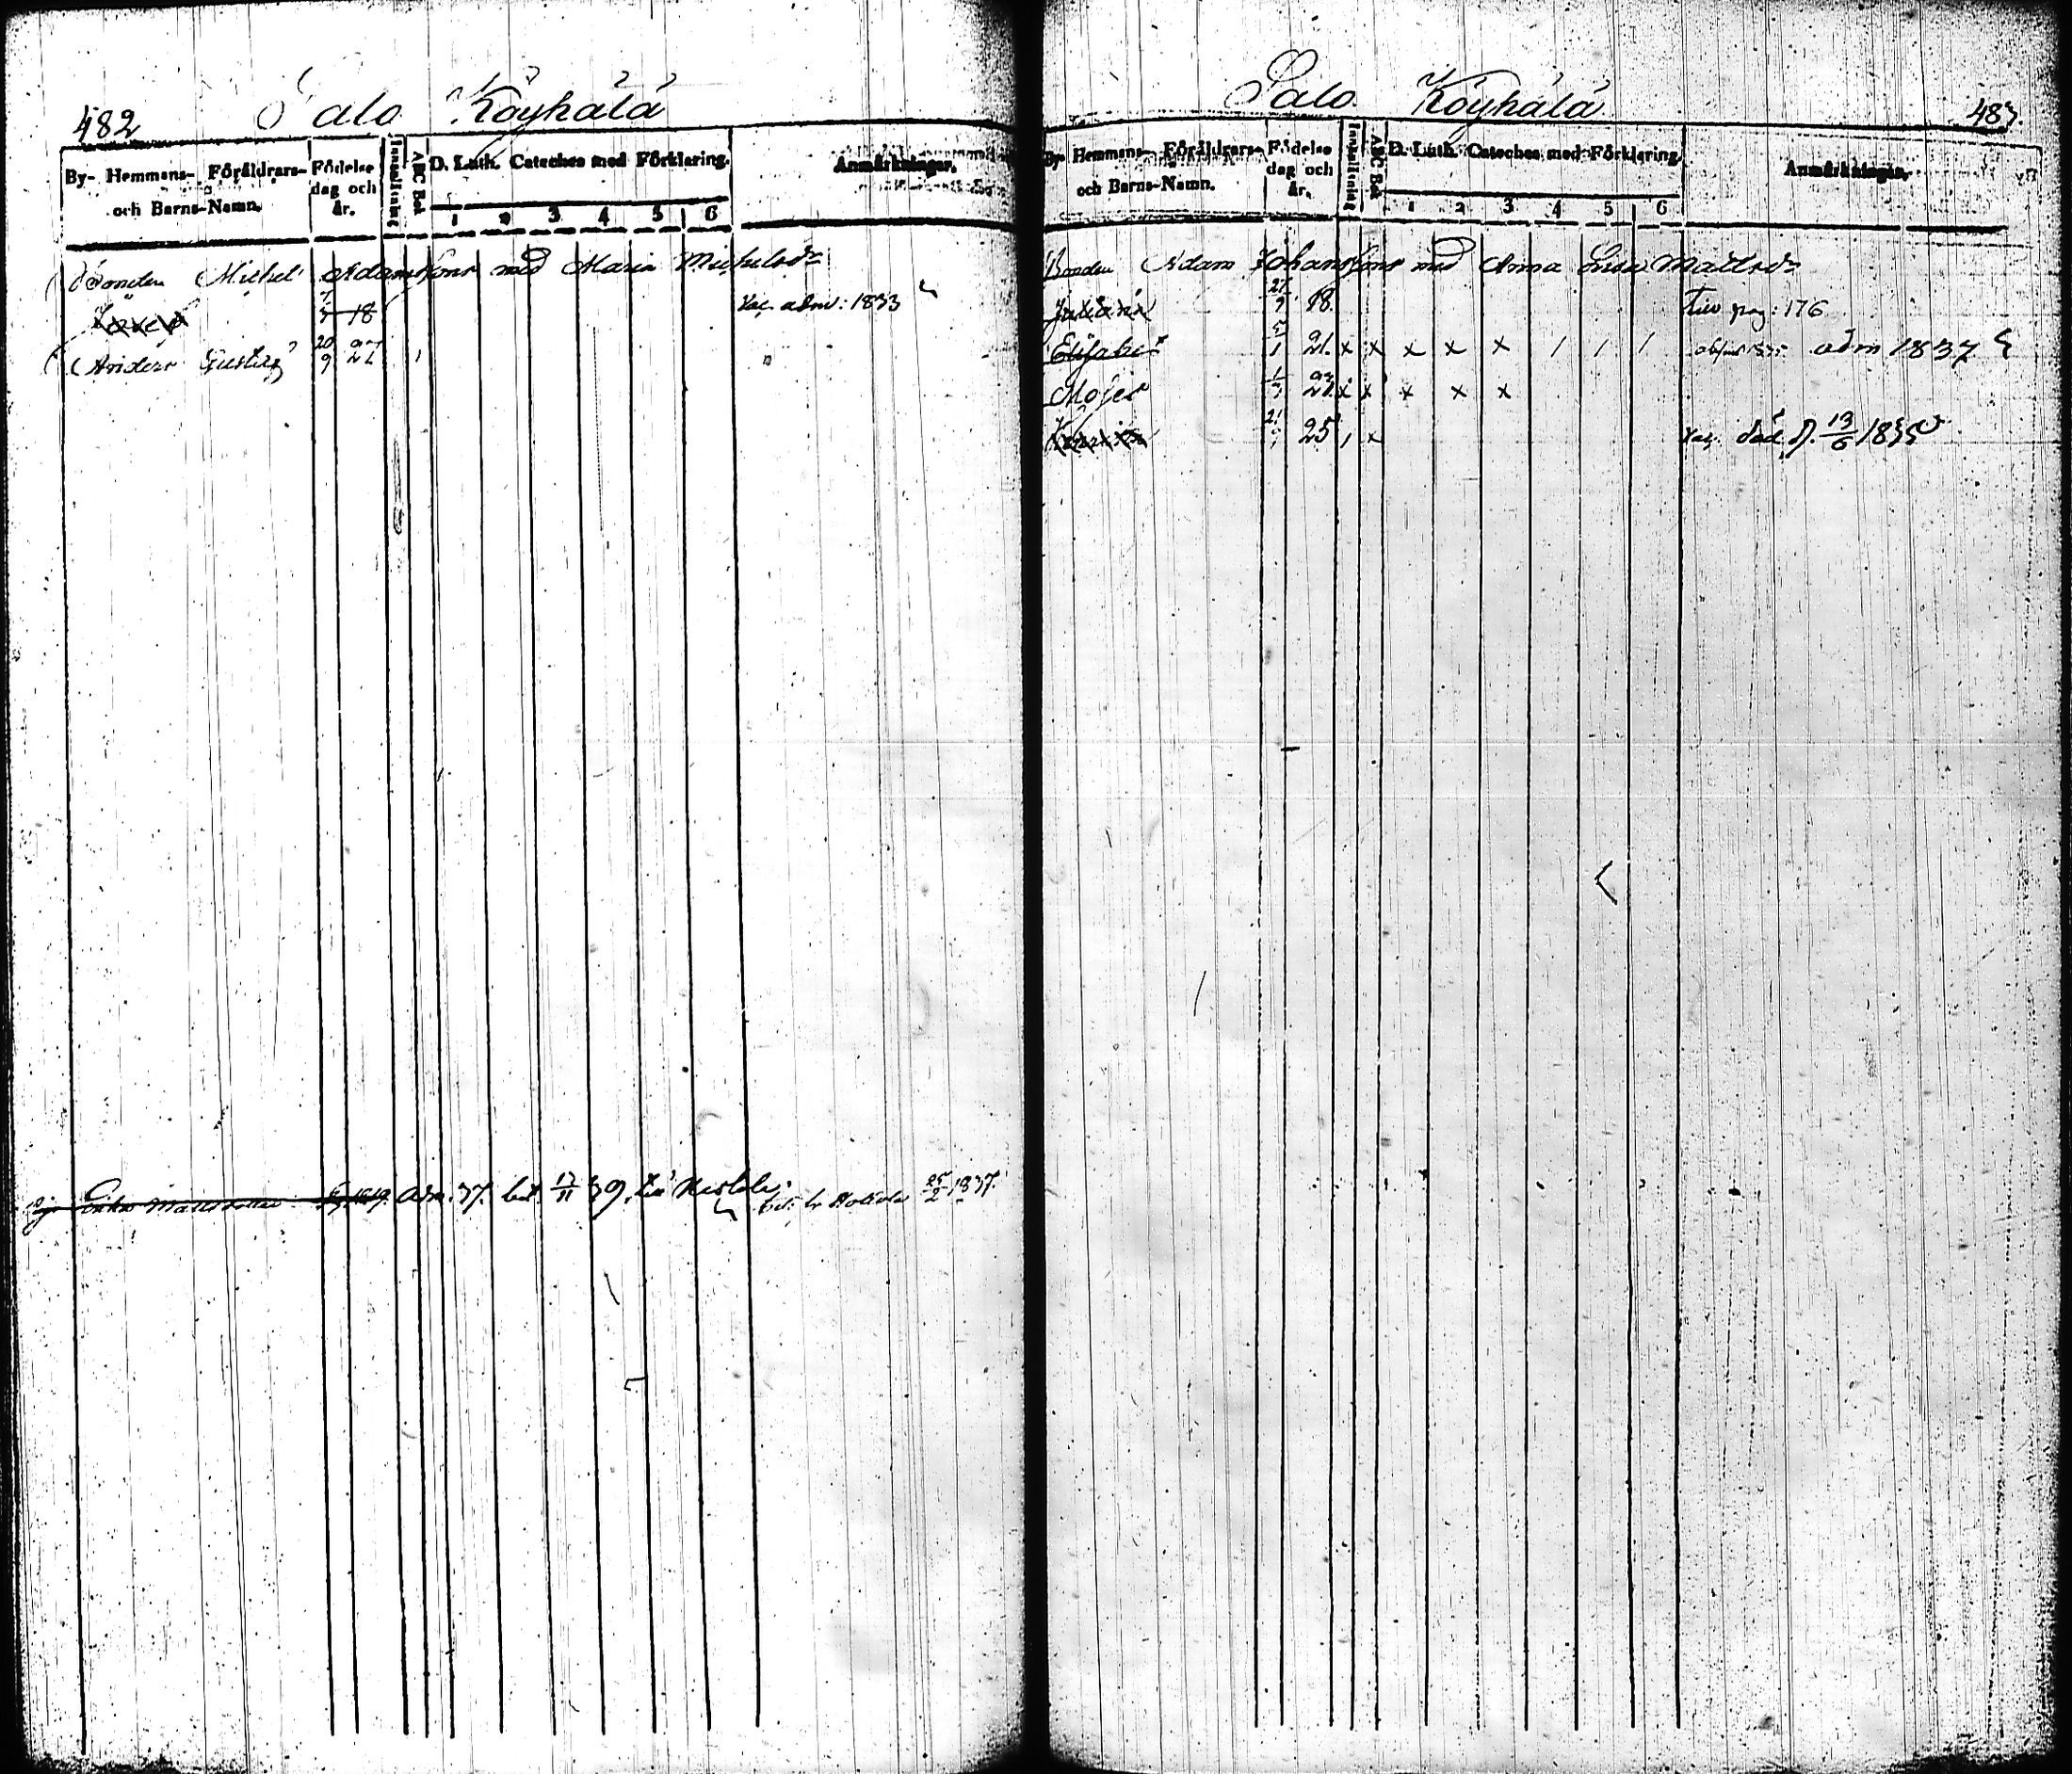 482 Salo Köyhälä
By- Hemmans- Föräldrars- och Barns-Namn. Födelse dag och år. Innanläsning ABC Bok D. Luth. Cateches med Förklaring. Anmärkningar.
1 2 3 4 5 6
Bonden Michel Adamsson med Maria Michelsdr
18 Vac. adm: 1833
Anders Gustaf 20/9 1
Matts dotter 1819. adm. 37. bet 17/11 39, till 25/2 1837.
Salo Köyhälä 483.
By- Hemmans- Föräldrars- och Barns-Namn. Födelse dag och år. Innanläsning ABC Bok D. Luth. Cateches med Förklaring. Anmärkningar.
1 2 3 4 5 6
Bonden Adam Johansson med Anna Lisa Mattsdr
Juliana 27/9 18. pag: 176
Elisabet 5/1 21. x x x x x / / / adm 1837
Moses x x x x x
25 / x Vac. död d. 19/6 1835